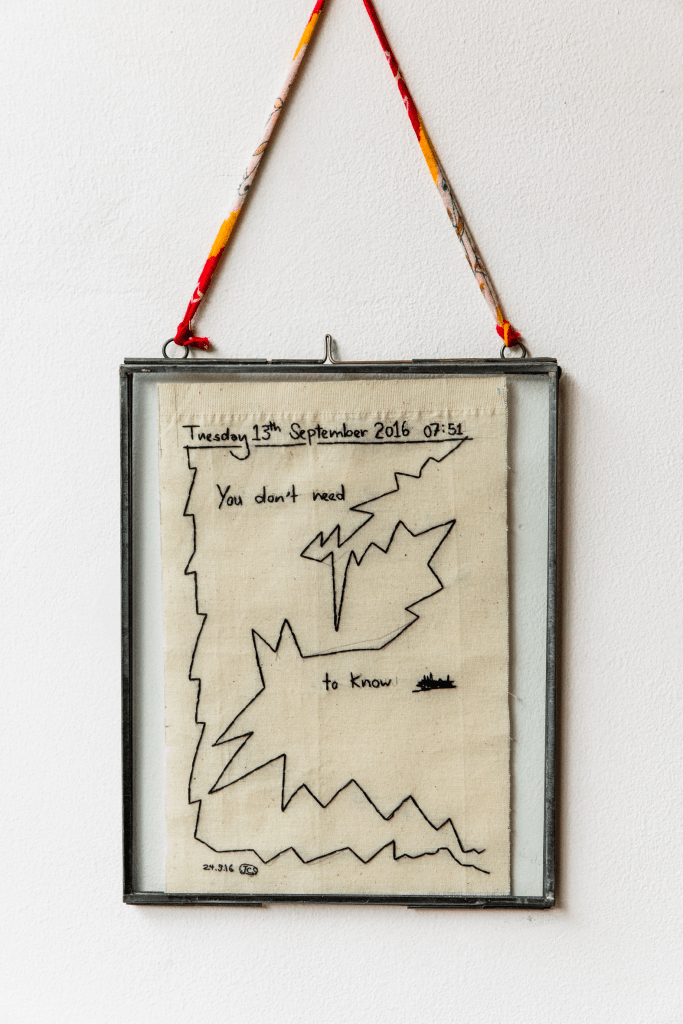 Tuesday 13th September 2016 07:51
You don't need
to know
24.9.16 JCS